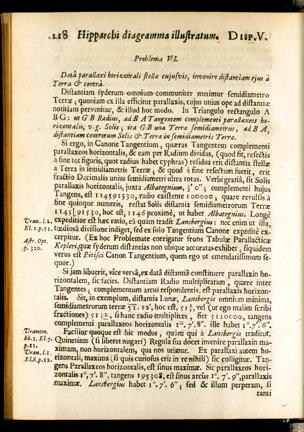 218 Hipparchi diagramma illustratum. DISP.V.
Problema VI.
Datâ parallaxi horizontali stellæ cujusvis, invenire distantiam ejus à
Terra & contrà.
Distantiam syderum omnium communiter metimur semidiametro
Terræ; quoniam ex illa efficitur parallaxis, cujus unius ope ad distantiæ
notitiam pervenitur, & illud hoc modo. In Triangulo rectangulo A
BG: ut G B Radius, ad B A Tangentem complementi parallaxeos hori-
zontalis, v.g. Solis; ita G B una Terræ semidiametrus, ad B A,
distantiam centrorum Solis & Terræ in semidiametris Terræ.
Si ergo, in Canone Tangentium, quæras Tangentem complementi
parallaxeos horizontalis, & eam per Radium dividas, (quod fit, resectis
à fine tot figuris, quot radius habet cyphras) residua erit distantia stellæ
à Terra in semidiametris Terræ; & quod à fine resectum fuerit, erit
fractio Decimalis unius semidiametri ultra totas. Verbi gratiâ, sit Solis
parallaxis horizontalis, juxta Albategnium, 3' 0"; complementi hujus
Tangens, est 114591530, radio existente 100000, quare revulsis à
fine quinque numeris, restat Solis distantia semidiametrorum Terræ
1145|91530, hoc est, 1146 proximè, ut habet Albategnius. Longè
expeditior est hæc ratio, et quàm tradit Lansbergius: nec enim ut illa,
tædiosâ divisione indiget, sed ex solo Tangentium Canone expeditè ex-
cerpitur. (Ex hoc Problemate corrigitur fronts Tabulæ Parallacticæ
Kepleri, quæ syderum distantias non ubique accuratas exhibet,
verus est Pitisci Canon Tangentium, quem ego ut emendatissimum se-
quor.)
Si jam libuerit, vice versâ, ex data distantia constituere parallaxin ho-
rizontalem, sic facies. Distantiam Radio multiplicatam, quære inter
Tangentes; complementum arcui respondentis, est parallaxis horizon-
talis. Sit, in exemplum, distantia Lunæ, Lansbergio omnium minima,
semidiametrorum terræ
fractiones) si hanc radio multiplices, fiet 5120000, tangens
complementi parallaxeos horizontalis 1°. 7'. 8". ille habet 1°. 7'. 6".
Facilior quoque est hic modus, quàm qui à Lansbergio traditur.
Quinetiam (si liberet nugari) Regula sua docet invenire parallaxin ma-
ximam, non horizontalem, qua nos utimur. Ex parallaxi autem ho-
rizontali, maxima (si quis curiosus erit in re nihili) sic colligitur. Tan-
gens Parallaxeos horizontalis, est sinus maximæ. Sic parallaxeos hori-
zontalis 1°. 7'. 8", tangens 195308, est sinus arcus 1°. 7'. 9", parallaxis
maximæ. Lansbergius habet 1°. 7'. 6"; sed & illum perperam, si
tanti